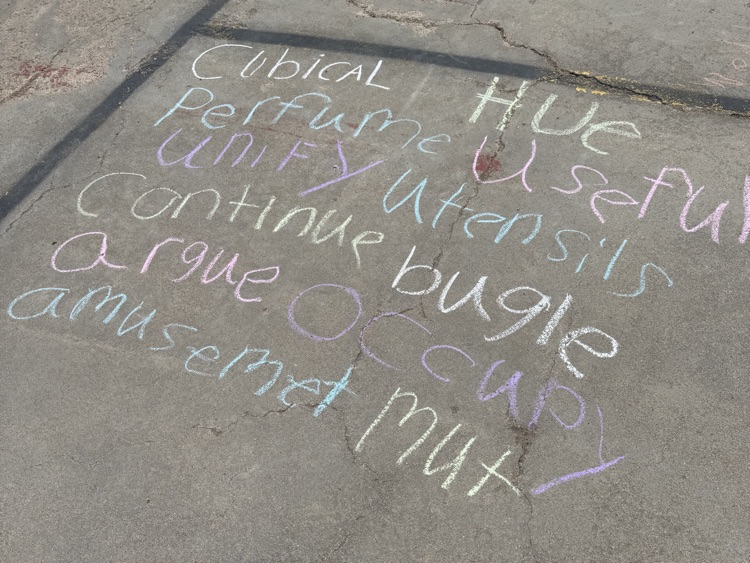 CUbICAL HUe
Perfume Useful
UNIFY Utensils
Continue bugle
argue OCCUPY
amusemet Mut